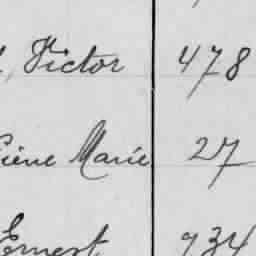 Victor 478
Marie 27
Ernest 934